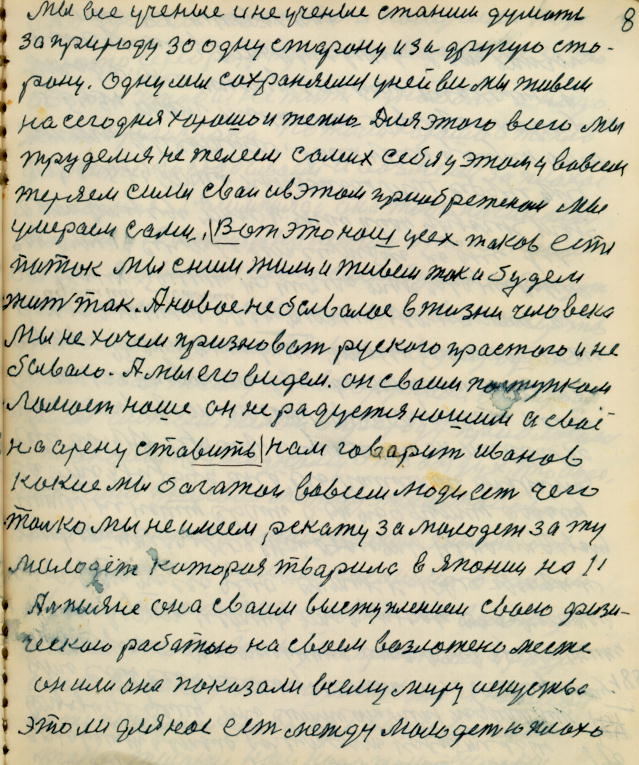 8
мы все ученые и не ученые стании думать
за природу зо одну старону и за другую сто-
рону. одну мы сохраняеми у ней ви мы живем
на сегодня хорошо и тепло Для этого всего мы
труделися не желеем самих себя у этому вовсем
теряем сили сваи ив этом приобретеном мы
умераем сами. Вот это наш усех таков есть
паток мы с ним жили и живем так и будем
жить так. А новое не бывалое в жизни человека
мы не хочем призновать руского прастого и не
бывало. А мы его видем. он сваим поступком
ломает наше он не радуется нашим а своё
на арену ставить нам говарит иванов
какие мы багатаи вовсем люди ест чего
толко мы не имеем я скажу за молодеж за ту
малодёж катория тварила в японии на 11
Алпияде она сваим выступлением своею физи-
ческою работою на своем возложено месте
он или она показали всему миру искуство
это ли для нас ест между малодежю плохо